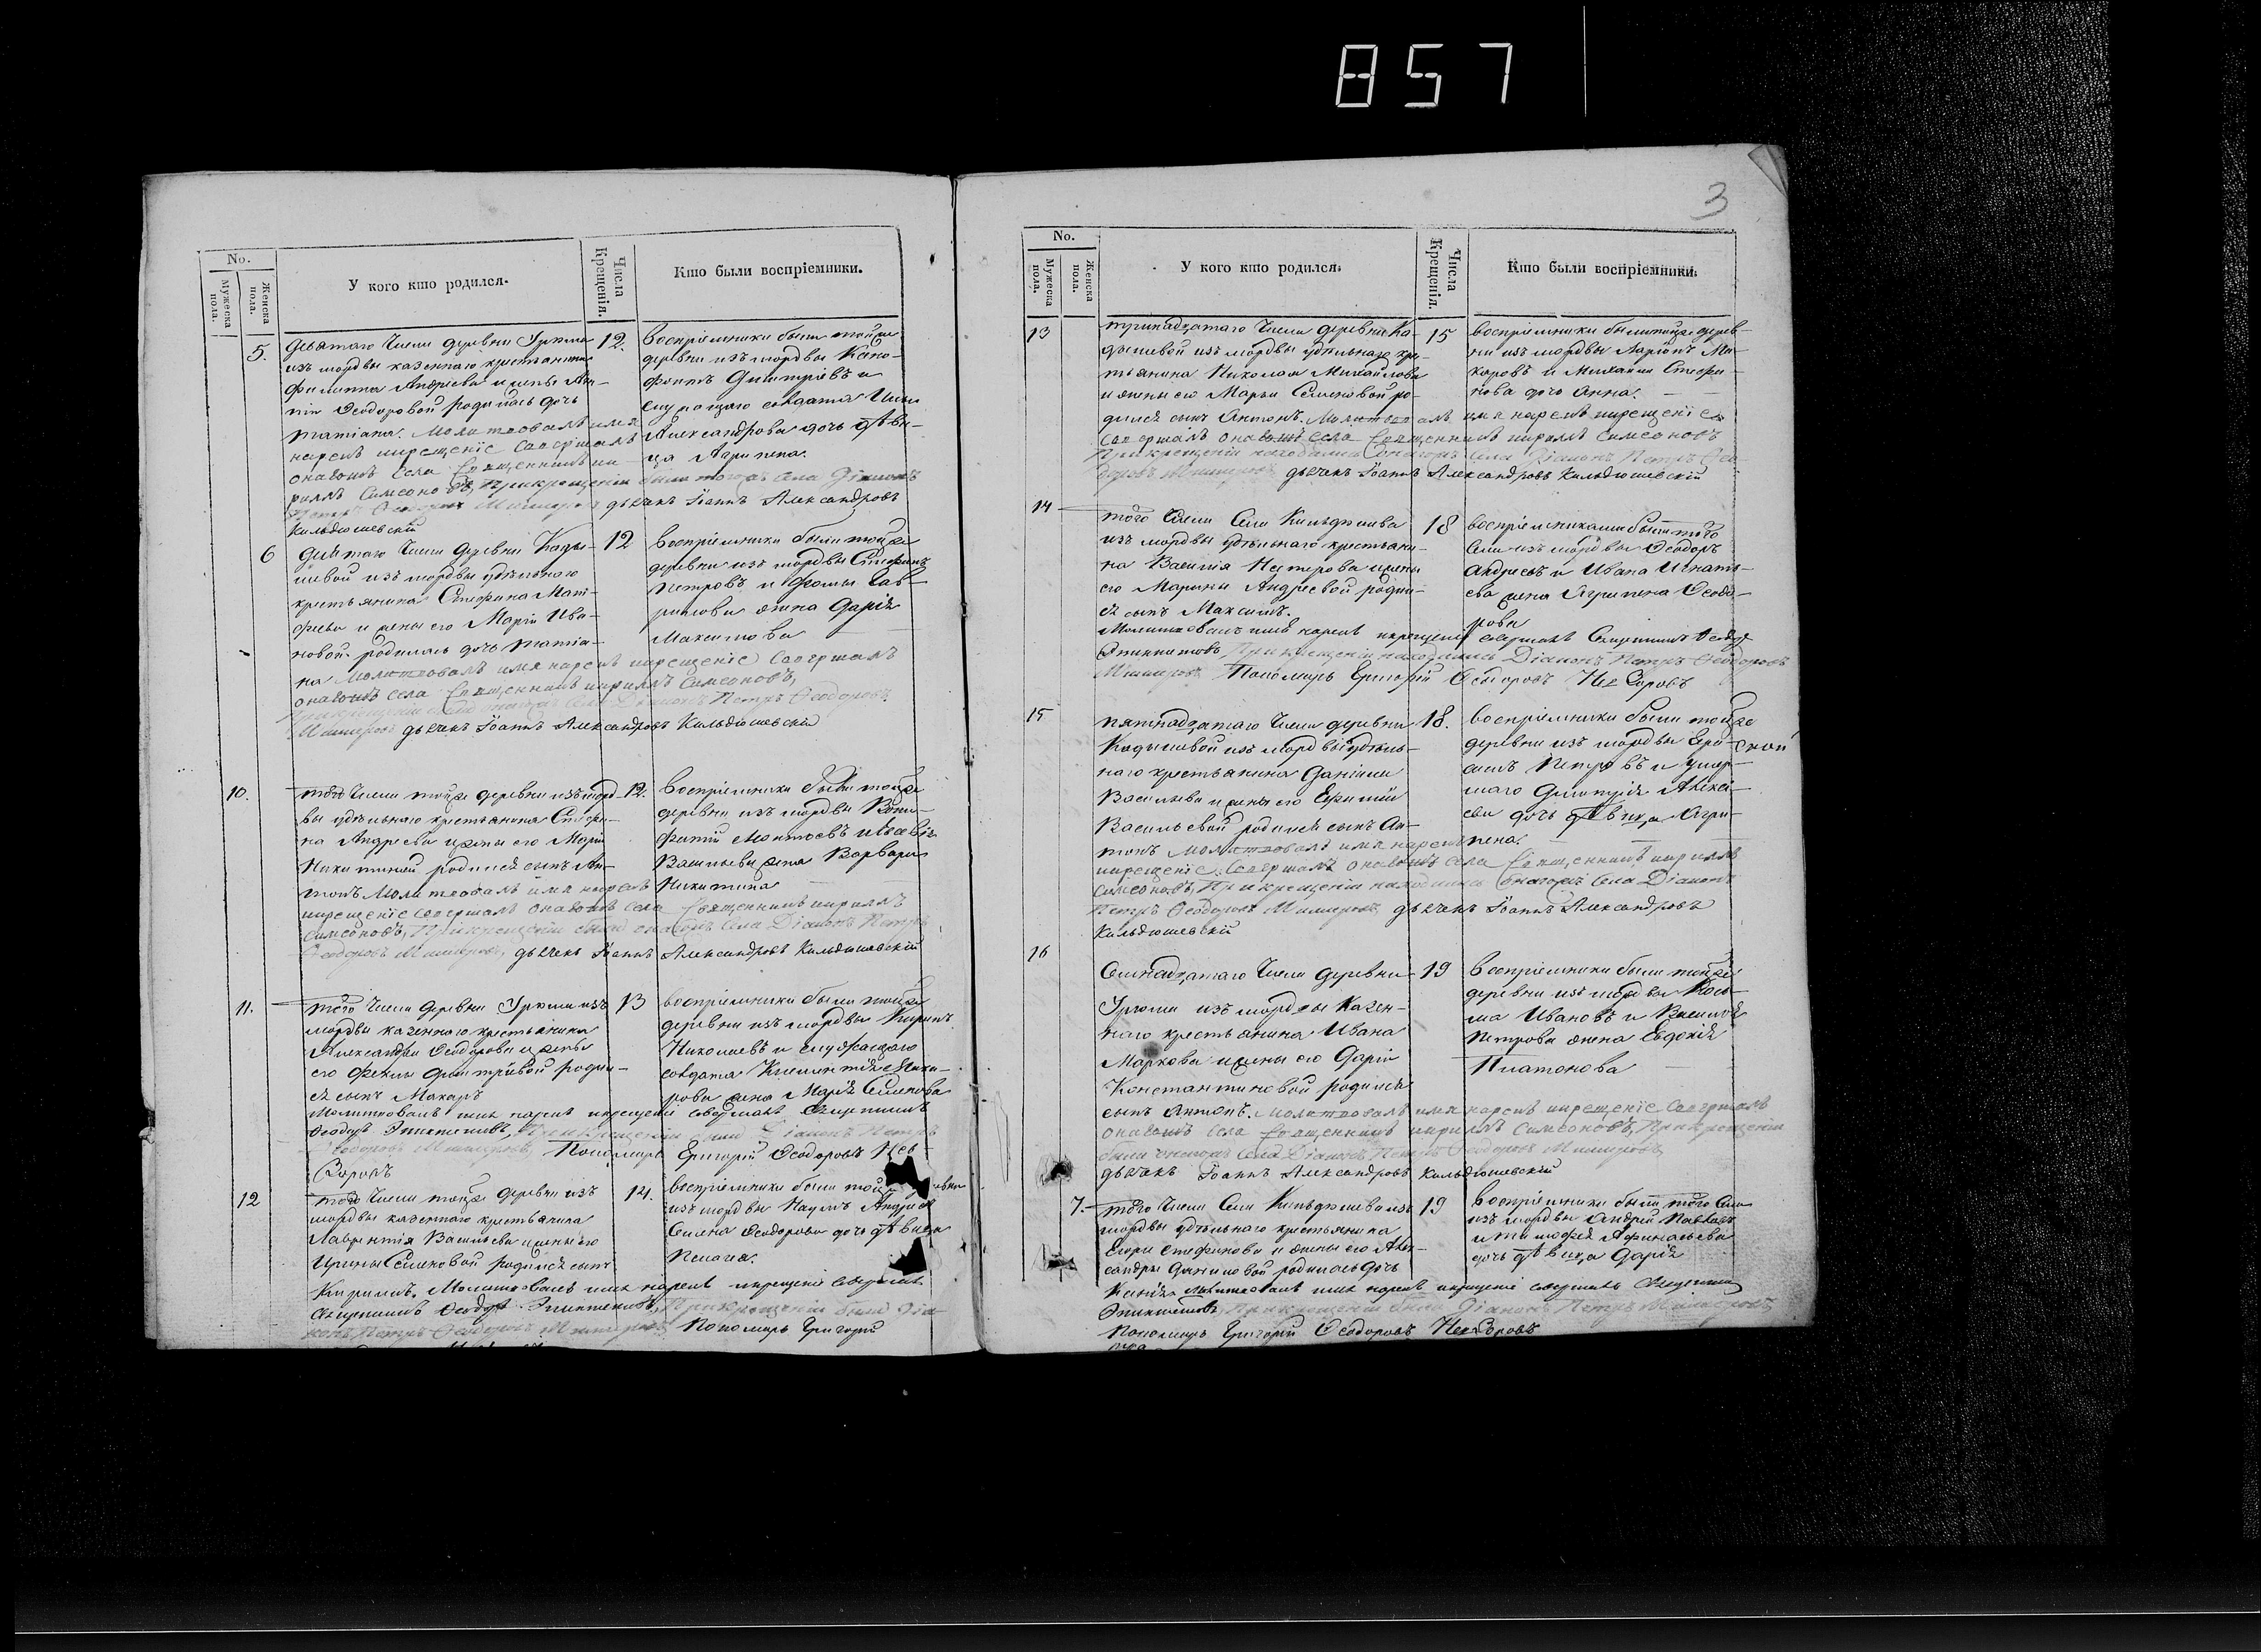 857
No.
Мужеска пола.
Женска пола.
У кого кто родился.
Числа Крещенія.
Кто были воспріемники.
5.
девятаго Числа деревни Урюма
изъ мордвы казеннаго крестьянина
Филиппа Андреева и жены
Ѳеодоровой родилась дочь
Татіана. Молитвовалъ имя
нарекъ и крещеніе Совершалъ
онагожъ Села Священникъ Ки-
риллъ Симеоновъ, При крещеніи были тогожъ Села Діаконъ
Петръ Ѳеодоровъ дьячекъ Іоаннъ Александровъ
Кильдюшевскій
12.
воспріемники были тойже
деревни изъ мордвы Ксено-
фонтъ Дмитріевъ и
служащаго солдата
Александрова дочь дѣви-
ца Агрипена.
6
девятаго Числа деревни Кады-
шевой изъ мордвы удѣльнаго
крестьянина Стефана Мат-
фѣева и жены его Маріи Ива-
новой родилась дочь Татіа-
на Молитвовалъ имя нарекъ и крещеніе Совершалъ
онагожъ Села Священникъ Кириллъ Симеоновъ,
При крещеніи были онагожъ Села Діаконъ Петръ Ѳеодоровъ
дьячекъ Іоаннъ Александровъ Кильдюшевскій
12
воспріемники были тойже
деревни изъ мордвы Стефанъ
Петровъ и Фомы Гав-
рилова жена Дарія
Максимова
10.
того Числа тойже деревни изъ морд-
вы удѣльнаго крестьянина Стефа-
на Андреева и жены его Маріи
Никитиной родился сынъ Ан-
тонъ Молитвовалъ имя нарекъ
и крещеніе Совершалъ онагожъ Села Священникъ Кириллъ
Симеоновъ, При крещеніи были онагожъ Села Діаконъ Петръ
Ѳеодоровъ дьячекъ Іоаннъ Александровъ Кильдюшевскій
12.
Воспріемники были тойже
деревни изъ мордвы Вони-
фатій
Васильева жена Варвара
Никитина
11.
того Числа деревни Урюма изъ
мордвы казеннаго крестьянина
Александра Ѳеодорова и жены
его Феклы Дмитріевой роди-
ся сынъ Макаръ
Молитвовалъ имя нарекъ и крещеніе совершалъ Священникъ
Ѳеодоръ Эпиктетовъ, При крещеніи были Діаконъ Петръ
Ѳеодоровъ Пономарь Григорій Ѳеодоровъ Нев-
зоровъ
13
воспріемники были тойже
деревни изъ мордвы
Николаевъ и служащаго
солдата
жена Марія Семенова
12
того Числа тойже деревни изъ
мордвы казеннаго крестьянина
Лаврентія Васильева и жены его
Ирины Семеновой родился сынъ
Кириллъ. Молитвовалъ имя нарекъ и крещеніе совершалъ
Священникъ Ѳеодоръ Эпиктетовъ, При крещеніи были Діа-
конъ Петръ Ѳеодоровъ Пономарь Григорій
14.
воспріемники были той
изъ мордвы Наумъ Андреевъ
Семена Ѳеодорова дочь дѣвица
Пелагея.
3
No.
Мужеска пола.
Женска пола.
У кого кто родился.
Числа Крещенія.
Кто были воспріемники.
13
тринадцатаго Числа деревни Ка-
дышевой изъ мордвы удѣльнаго кре-
стьянина Николая Михайлова
и жены его Марьи Семеновой ро-
дился сынъ Антонъ. Молитвовалъ имя нарекъ и крещеніе
Совершалъ онагожъ Села Священникъ Кириллъ Симеоновъ
При крещеніи находились онагожъ Села Діаконъ Петръ Ѳео-
доровъ дьячекъ Іоаннъ Александровъ Кильдюшевскій
15
воспріемники были тойже дерев-
ни изъ мордвы Ларіонъ Ма-
каровъ и Михаила Стефа-
нова дочь Анна.
14
того Числа Села Кильдюшева
изъ мордвы удѣльнаго крестьяни-
на Василія Нестерова и жены
его Марины Андреевой роди-
ся сынъ Максимъ.
Молитвовалъ имя нарекъ и крещеніе совершалъ Священникъ Ѳеодоръ
Эпиктетовъ, При крещеніи находились Діаконъ Петръ Ѳеодоровъ
Пономарь Григорій Ѳеодоровъ Невзоровъ
18
воспріемниками были того
Села изъ мордвы Ѳеодоръ
Андреевъ и Ивана Игнать-
ева жена Агрипена Ѳеодо-
рова
15
пятнадцатаго Числа деревни
Кадышевой изъ мордвы удѣль-
наго крестьянина Даніила
Васильева и жены его Евфиміи
Васильевой родился сынъ Ан-
тонъ Молитвовалъ имя нарекъ
и крещеніе Совершалъ онагожъ Села Священникъ Кириллъ
Симеоновъ, При крещеніи находились онагожъ Села Діаконъ
Петръ Ѳеодоровъ дьячекъ Іоаннъ Александровъ
Кильдюшевскій
18.
воспріемники были тойже
деревни изъ мордвы
Петровъ и умер-
шаго Димитрія Алексѣ-
ева дочь дѣвица Агри-
пена.
16
Семнадцатаго Числа деревни
Урюма изъ мордвы Казен-
наго крестьянина Ивана
Маркова и жены его Даріи
Константиновой родился
сынъ Антонъ. Молитвовалъ имя нарекъ и крещеніе Совершалъ
онагожъ Села Священникъ Кириллъ Симеоновъ, При крещеніи
были онагожъ Села Діаконъ Петръ Ѳеодоровъ
дьячекъ Іоаннъ Александровъ Кильдюшевскій
19
Воспріемники были тойже
деревни изъ мордвы Кось-
ма Ивановъ и Василія
Петрова жена Евдокія
Платонова
7.
того Числа Села Кильдюшева изъ
мордвы удѣльнаго крестьянина
Егора Стефанова и жены его Алек-
сандры Даниловой родилась дочь
Ксенія. Молитвовалъ имя нарекъ и крещеніе совершалъ Священникъ
Эпиктетовъ, При крещеніи были Діаконъ Петръ
Пономарь Григорій Ѳеодоровъ Невзоровъ
19
Воспріемники были того Села
изъ мордвы Андрей Павловъ
и Тимофея Афанасьева
дочь дѣвица Дарія